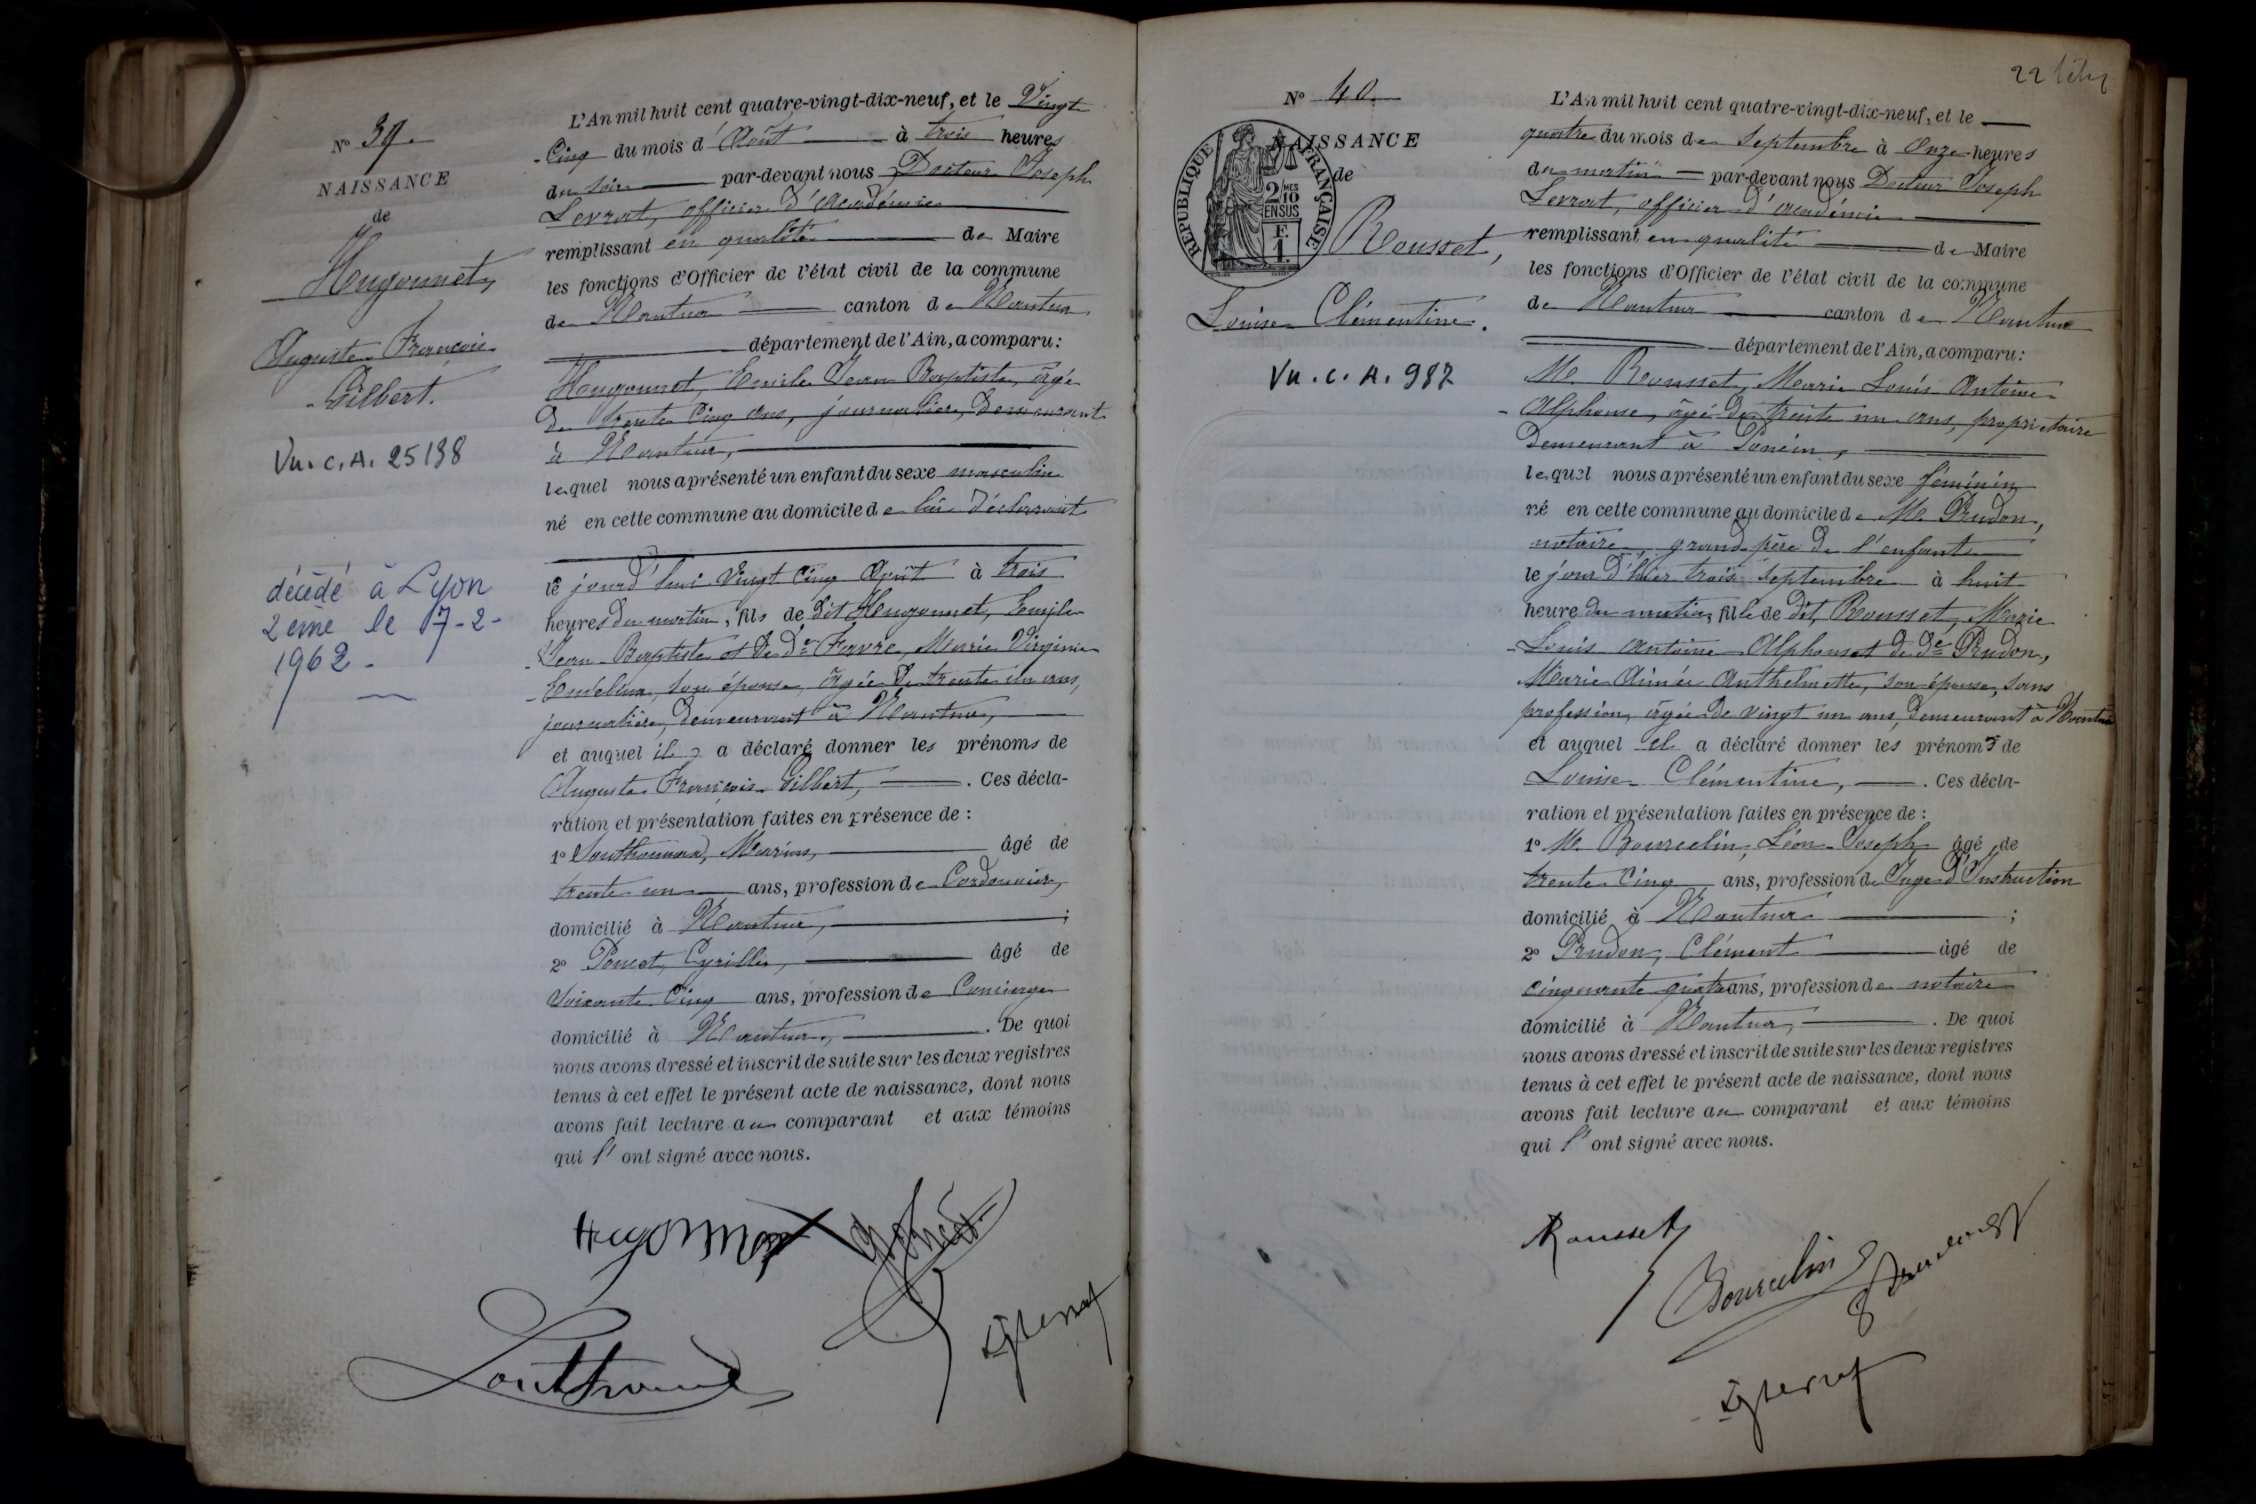 N° 39.
NAISSANCE
de
Hugonnet,
Auguste François
Gilbert.
Vu. C. A. 25198
décédé à Lyon
2ème le 17-2-
1962.
L'An mil huit cent quatre-vingt-dix-neuf, et le Vingt
-Cinq du mois d'Août à trois heures
du soir par-devant nous Docteur Joseph
Levrat, officier d'académie
remplissant en qualité de Maire
les fonctions d'Officier de l'état civil de la commune
de Nantua canton de Nantua
département de l'Ain, a comparu :
Hugonnet, Emile Jean Baptiste, âgé
de trente cinq ans, journalier, demeurant
à Nantua,
lequel nous a présenté un enfant du sexe masculin
né en cette commune au domicile de lui déclarant
le jourd'hui vingt cinq Août à trois
heures du matin, fils de dit Hugonnet, Emile
Jean-Baptiste et de De Favre, Marie Virginie
son épouse, âgée de trente un ans,
journalière, demeurant à Nantua,
et auquel il a déclaré donner les prénoms de
Auguste François Gilbert, . Ces décla-
ration et présentation faites en présence de :
1° Southonnax, Marius, âgé de
trente un ans, profession de Cordonnier,
domicilié à Nantua, ;
2° Poncet, Cyrille, âgé de
soixante cinq ans, profession de Concierge
domicilié à Nantua, . De quoi
nous avons dressé et inscrit de suite sur les deux registres
tenus à cet effet le présent acte de naissance, dont nous
avons fait lecture au comparant et aux témoins
qui l'ont signé avec nous.
Hugonnet
N° 40.
NAISSANCE
de
RÉPUBLIQUE FRANÇAISE
2 MES 10
EN SUS
F.
1.
Rousset,
Louise Clémentine.
Vu. C. A. 987
L'An mil huit cent quatre-vingt-dix-neuf, et le
quatre du mois de septembre à Onze heures
du matin par-devant nous Docteur Joseph
Levrat, officier d'académie
remplissant en qualité de Maire
les fonctions d'Officier de l'état civil de la commune
de Nantua canton de Nantua
département de l'Ain, a comparu :
Mr Rousset, Marie Louis Antoine
Alphonse, âgé de trente un ans, propriétaire
demeurant à
lequel nous a présenté un enfant du sexe féminin
né en cette commune au domicile de Mr Prudon,
notaire, grand-père de l'enfant
le jour d'hier trois septembre à huit
heure du matin, fille de dit Rousset, Marie
Louis Antoine Alphonse et de De Prudon,
Marie Aimée Anthelmette, son épouse, sans
profession, âgée de vingt un ans, demeurant à Nantua
et auquel il a déclaré donner les prénoms de
Louise Clémentine, . Ces décla-
ration et présentation faites en présence de :
1° Mr Bourcelin, Léon Joseph âgé de
trente cinq ans, profession de Juge d'Instruction
domicilié à Nantua ;
2° Prudon, Clément âgé de
cinquante quatre ans, profession de notaire
domicilié à Nantua, . De quoi
nous avons dressé et inscrit de suite sur les deux registres
tenus à cet effet le présent acte de naissance, dont nous
avons fait lecture au comparant et aux témoins
qui l'ont signé avec nous.
Rousset
Bourcelin